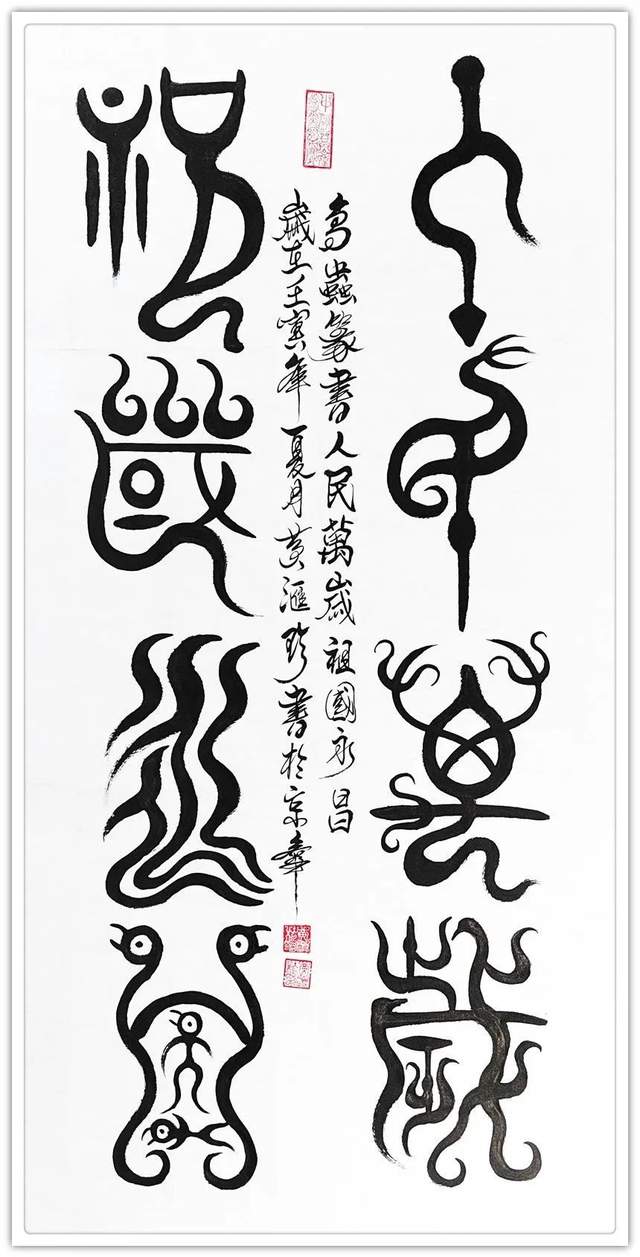 人民萬歲
鳥蟲篆書人民萬歲祖國永昌
歲在壬寅年夏月黄滙珍書於京華
祖國永昌